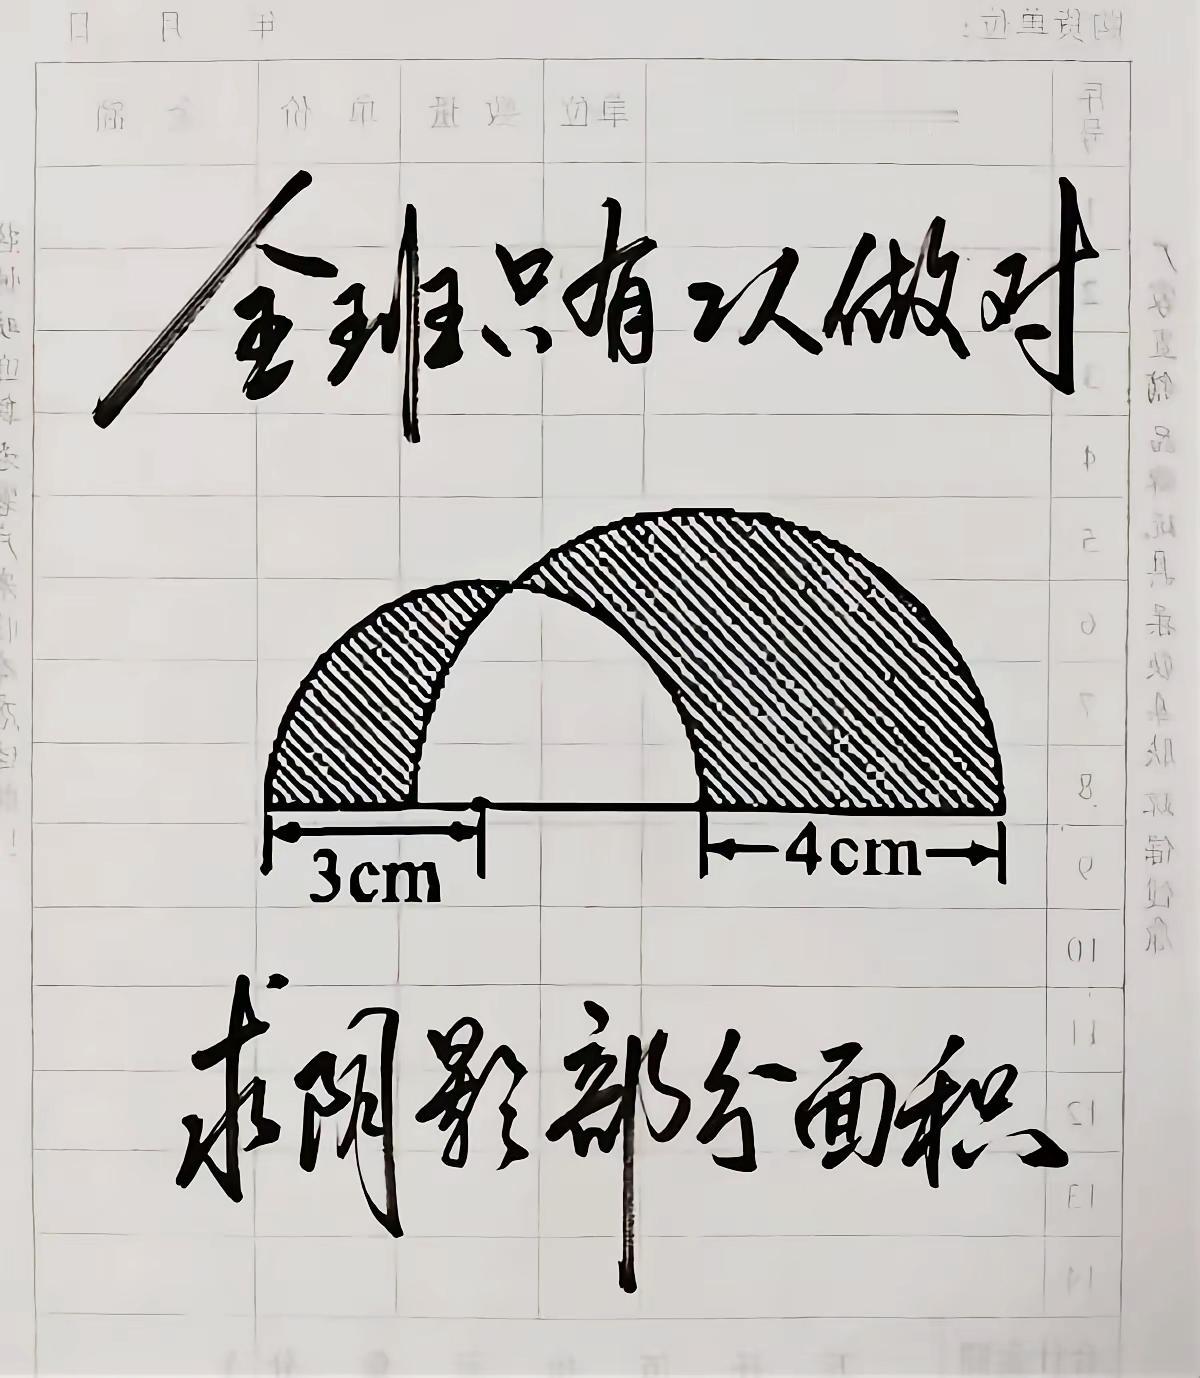 购货单位: 年 月 日
序号 单位 数量 单价 金额
全班只有2人做对
1
2
3
4
5
6
7
8
9
10
11
12
13
14
3cm
4cm
求阴影部分面积